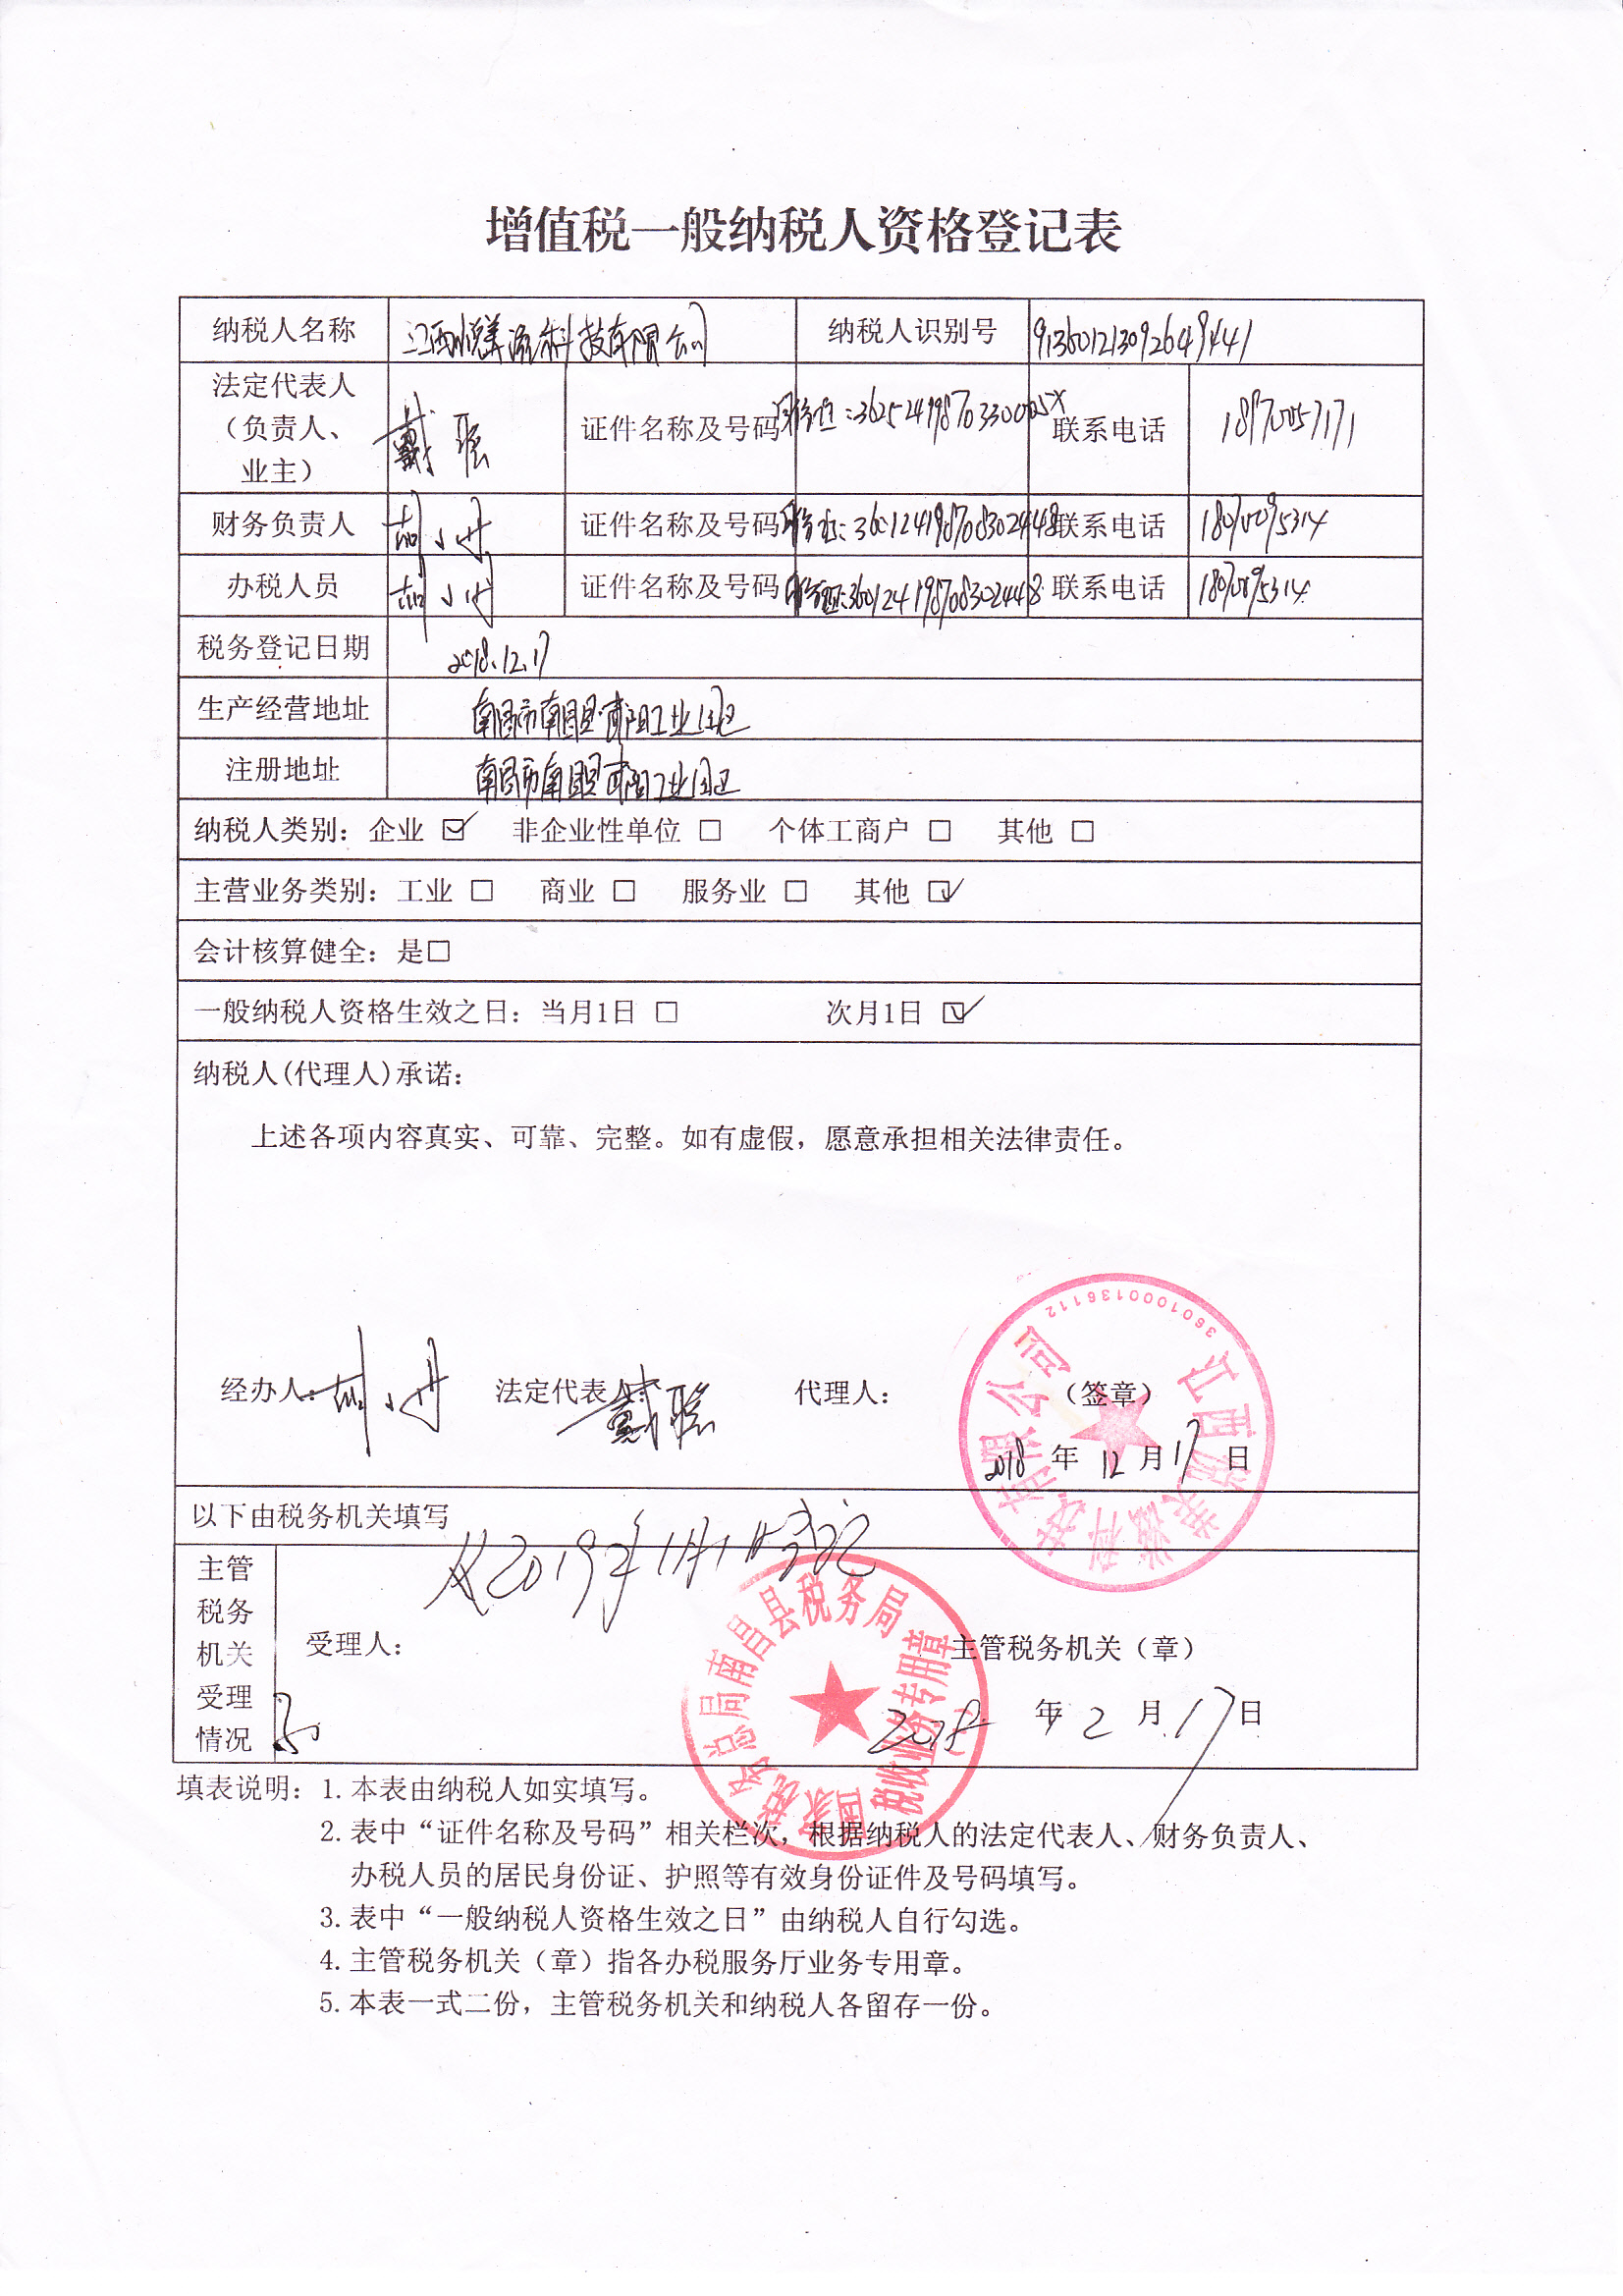 增值税一般纳税人资格登记表
纳税人名称 江西 科技有限公司 纳税人识别号 913601213092649441
法定代表人（负责人、业主） 戴 证件名称及号码 联系电话
财务负责人 胡小丹 证件名称及号码 身份证:360124198708302448 联系电话
办税人员 胡小丹 证件名称及号码 身份证:360124198708302448 联系电话
税务登记日期 2018.12.17
生产经营地址 南昌市南昌县 工业园区
注册地址 南昌市南昌县 工业园区
纳税人类别：企业 ☑ 非企业性单位 □ 个体工商户 □ 其他 □
主营业务类别：工业 □ 商业 □ 服务业 □ 其他 ☑
会计核算健全：是□
一般纳税人资格生效之日：当月1日 □ 次月1日 ☑
纳税人(代理人)承诺：
上述各项内容真实、可靠、完整。如有虚假，愿意承担相关法律责任。
3601000136112
江西 科技有限公司
经办人：胡小丹 法定代表人：戴 代理人： （签章）
2018 年 12 月 17 日
以下由税务机关填写
从2019年1月1日
主管税务机关受理情况
受理人： 主管税务机关（章）
国家税务总局南昌县税务局
税收业务专用章
2018 年 12 月 17 日
填表说明：1.本表由纳税人如实填写。
2.表中“证件名称及号码”相关栏次，根据纳税人的法定代表人、财务负责人、
办税人员的居民身份证、护照等有效身份证件及号码填写。
3.表中“一般纳税人资格生效之日”由纳税人自行勾选。
4.主管税务机关（章）指各办税服务厅业务专用章。
5.本表一式二份，主管税务机关和纳税人各留存一份。